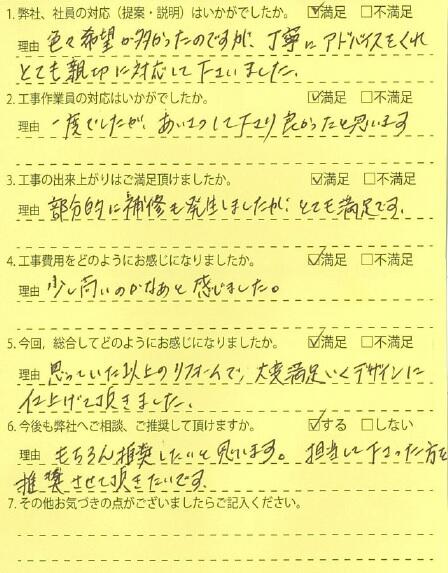 1. 弊社、社員の対応(提案・説明)はいかがでしたか。 ☑満足 □不満足
理由 色々希望が多かったのですが、丁寧にアドバイスをくれ
とても親切に対応して下さいました。
2. 工事作業員の対応はいかがでしたか。 ☑満足 □不満足
理由 一度でしたが、あいさつして下さり良かったと思います
3. 工事の出来上がりはご満足頂けましたか。 ☑満足 □不満足
理由 部分的に補修も発生しましたが、とても満足です。
4. 工事費用をどのようにお感じになりましたか。 ☑満足 □不満足
理由 少し高いのかなあと感じました。
5. 今回、総合してどのようにお感じになりましたか。 ☑満足 □不満足
理由 思っていた以上のリフォームで、大変満足いくデザインに
仕上げて頂きました。
6. 今後も弊社へご相談、ご推奨して頂けますか。 ☑する □しない
理由 もちろん推奨したいと思います。担当して下さった方を
推奨させて頂きたいです。
7. その他お気づきの点がございましたらご記入ください。